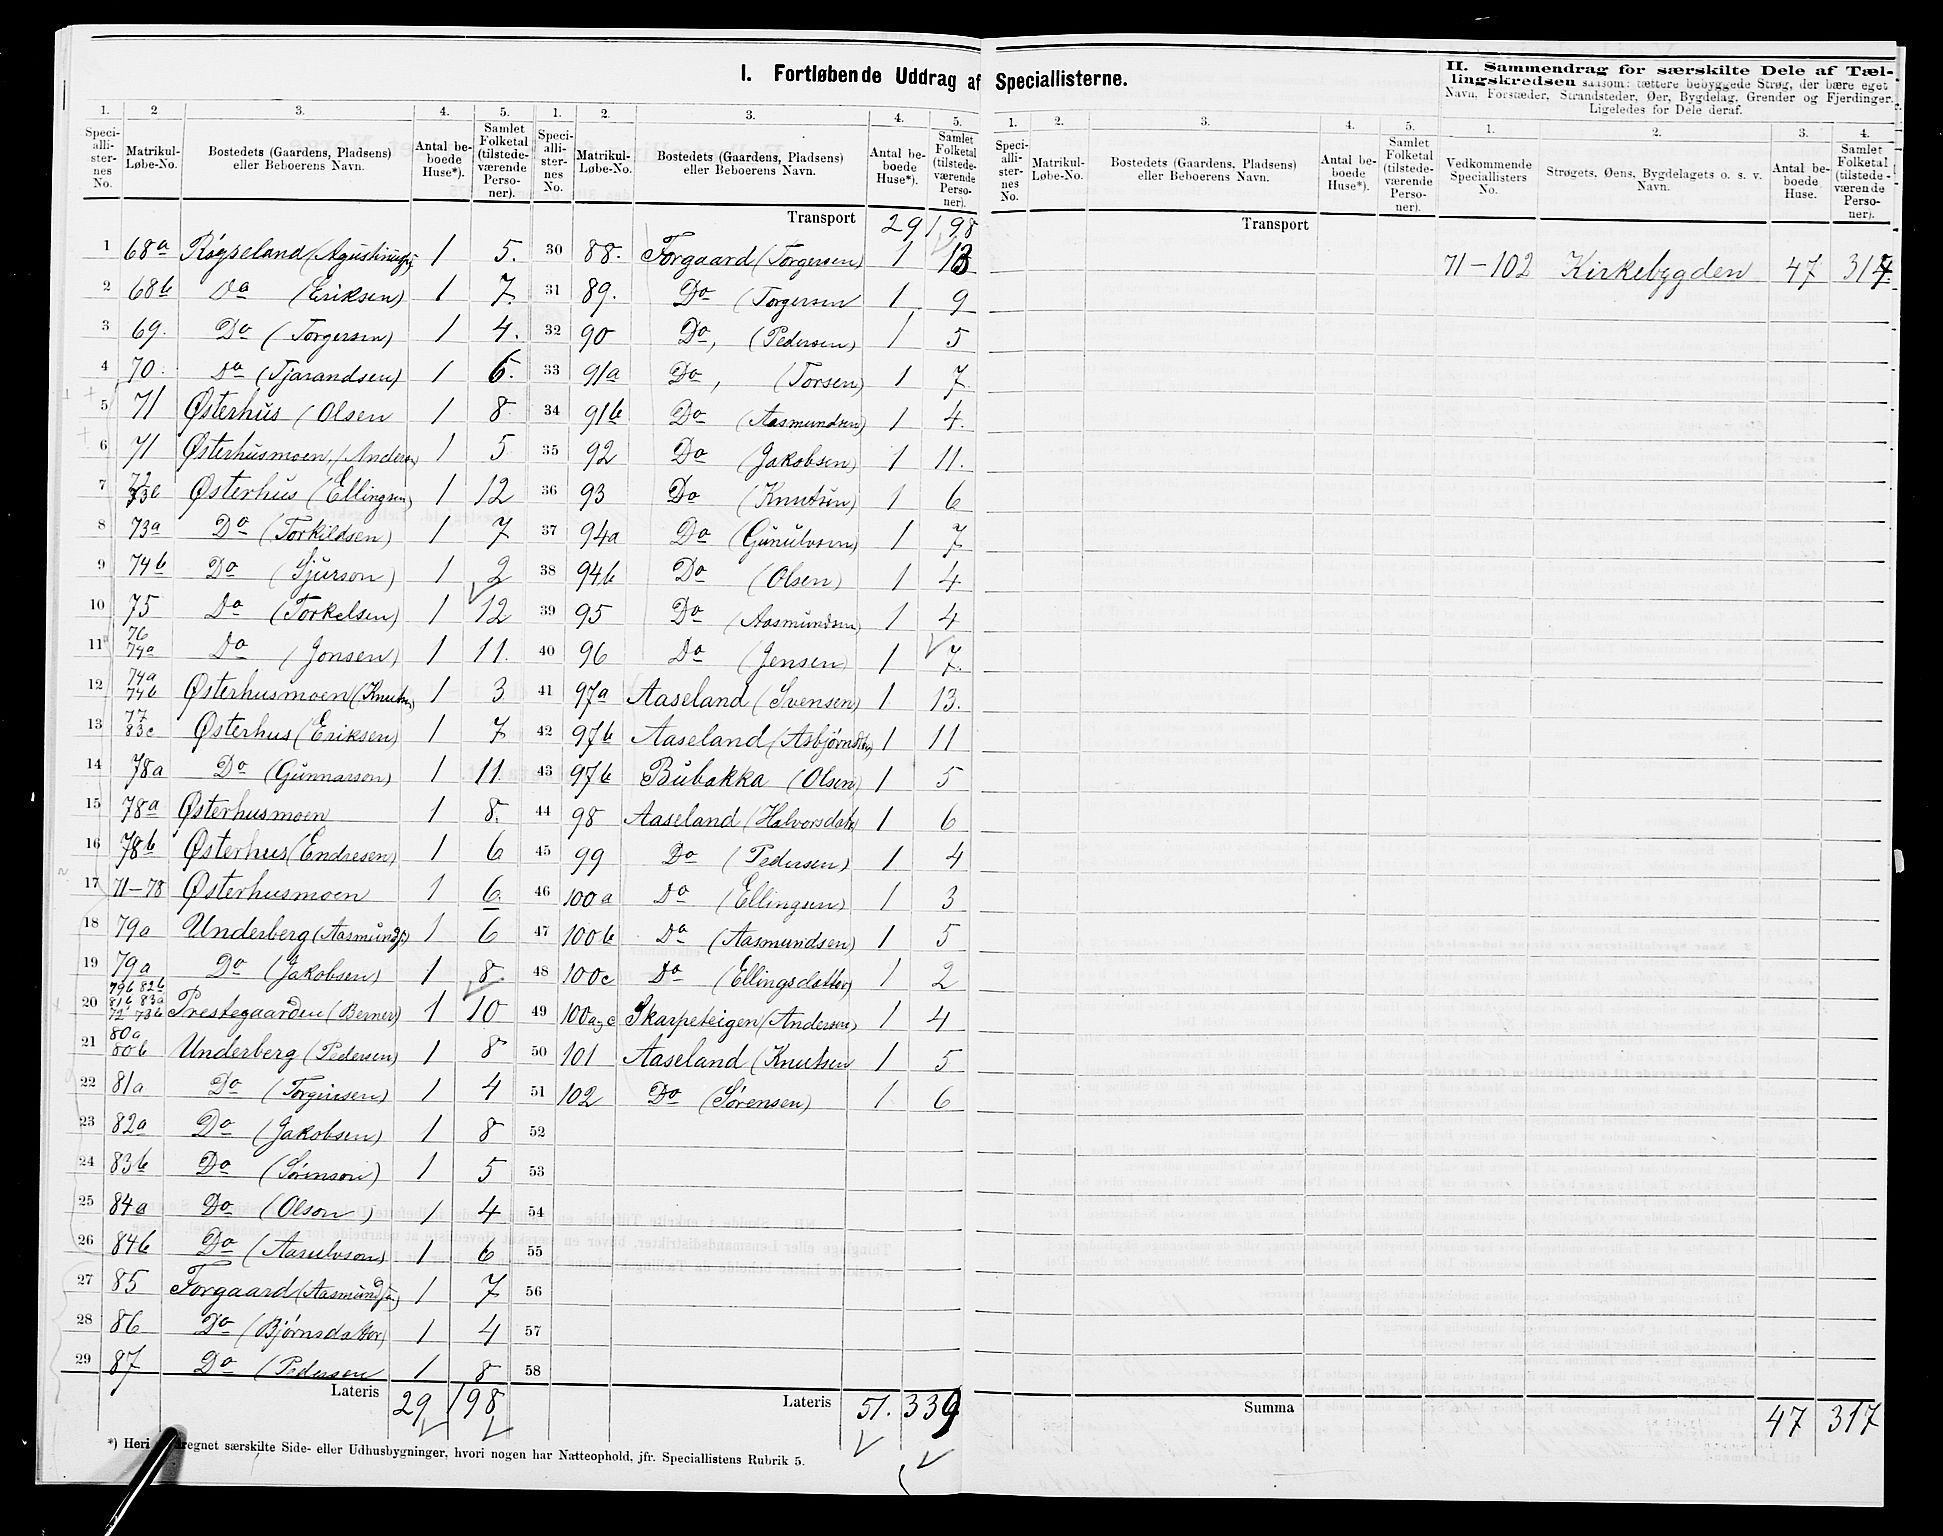 I. Fortløbende Uddrag af Speciallisterne.
II. Sammendrag for særskilte Dele af Tæl-
lingskredsen saasom: tættere bebyggede Strøg, der bære eget
Navn, Forstæder, Strandsteder, Øer, Bygdelag, Grender og Fjerdinger.
Ligeledes for Dele deraf.
1. 2 3. 4. 5.
Speci-alli-ster-nes No. Matrikul-Løbe-No. Bostedets (Gaardens, Pladsens) eller Beboerens Navn. Antal be-boede Huse*). Samlet Folketal (tilstede-værende Perso-ner).
1 68a Røgseland (Agustinusen) 1 5.
2 68b Do (Eriksen) 1 7.
3 69. Do (Torgersen) 1 4.
4 70. Do (Tjarandsen) 1 6.
5 71 Østerhus (Olsen 1 8
6 71 Østerhusmoen (Andersen) 1 5
7 72 73c Østerhus (Ellingsen) 1 12
8 73a Do (Torkildsen) 1 7
9 74b Do (Sjurson) 1 2
10 75 Do (Torkelsen) 1 12
11 76 74a Do (Jonsen) 1 11.
12 74a 74b Østerhusmoen (Knutsen) 1 3
13 77 83c Østerhus (Eriksen) 1 7
14 78a Do (Gunnarson) 1 11
15 78a Østerhusmoen 1 8.
16 78b Østerhus (Endresen) 1 6
17 71-78 Østerhusmoen 1 6.
18 79a Underberg (Aasmunds.) 1 6
19 79a Do (Jakobsen) 1 8
20 79b 82b 81b 83a 72 73b Prestegaarden (Berner) 1 10
21 80a 80b Underberg (Pedersen) 1 8
22 81a Do (Torginsen) 1 4
23 82a Do (Jakobsen) 1 8
24 83b Do (Sørinson) 1 5
25 84a Do (Olson) 1 4
26 84b Do (Aasulvson) 1 6
27 85 Torgaard (Aasmunds.) 1 7
28 86 Do (Bjørnsdatter) 1 4
29 87 Do (Pedersen 1 8
Lateris 29 198
1. 2. 3. 4. 5.
Speci-alli-ster-nes No. Matrikul-Løbe-No. Bostedets (Gaardens, Pladsens) eller Beboerens Navn. Antal be-boede Huse*). Samlet Folketal (tilstede-værende Perso-ner).
Transport 29 198
30 88. Torgaard (Torgersen) 1 13
31 89. Do (Torgersen 1 9
32 90 Do, (Pedersen) 1 5
33 91a Do, (Torsen) 1 7
34 91b Do (Aasmundsen) 1 4.
35 92 Do (Jakobsen) 1 11.
36 93 Do (Knutsen) 1 6
37 94a Do (Gunulvsen) 1 7
38 94b Do (Olsen) 1 4
39 95 Do (Aasmundsen) 1 4
40 96 Do (Jensen) 1 7.
41 97a Aaseland (Svensen) 1 13.
42 97b Aaseland (Asbjørnsen) 1 11
43 97b Bubakka (Olsen) 1 5
44 98 Aaseland (Halvorsdatter) 1 6
45 99 Do (Pedersen) 1 4
46 100a Do (Ellingsen) 1 3
47 100b Do (Aasmundsen) 1 5
48 100c Do (Ellingsdatter) 1 2
49 100a,c Skarpeteigen (Andersen) 1 4
50 101 Aaseland (Knutsen 1 5
51 102 Do (Sørensen) 1 6
52
53
54
55
56
57
58
Lateris 51. 339
*) Heri regnet særskilte Side- eller Udhusbygninger, hvori nogen har Natteophold, jfr. Speciallistens Rubrik 5.
1. 2. 3. 4. 5.
Speci-alli-ster-nes No. Matrikul-Løbe-No. Bostedets (Gaardens, Pladsens) eller Beboerens Navn. Antal be-boede Huse*). Samlet Folketal (tilstede-værende Perso-ner).
Transport
Summa
1. 2. 3. 4.
Vedkommende Speciallisters No. Strøgets, Øens, Bygdelagets o. s. v. Navn. Antal be-boede Huse. Samlet Folketal (tilstede-værende Perso-ner).
71-102 Kirkebygden 47 317
47 317